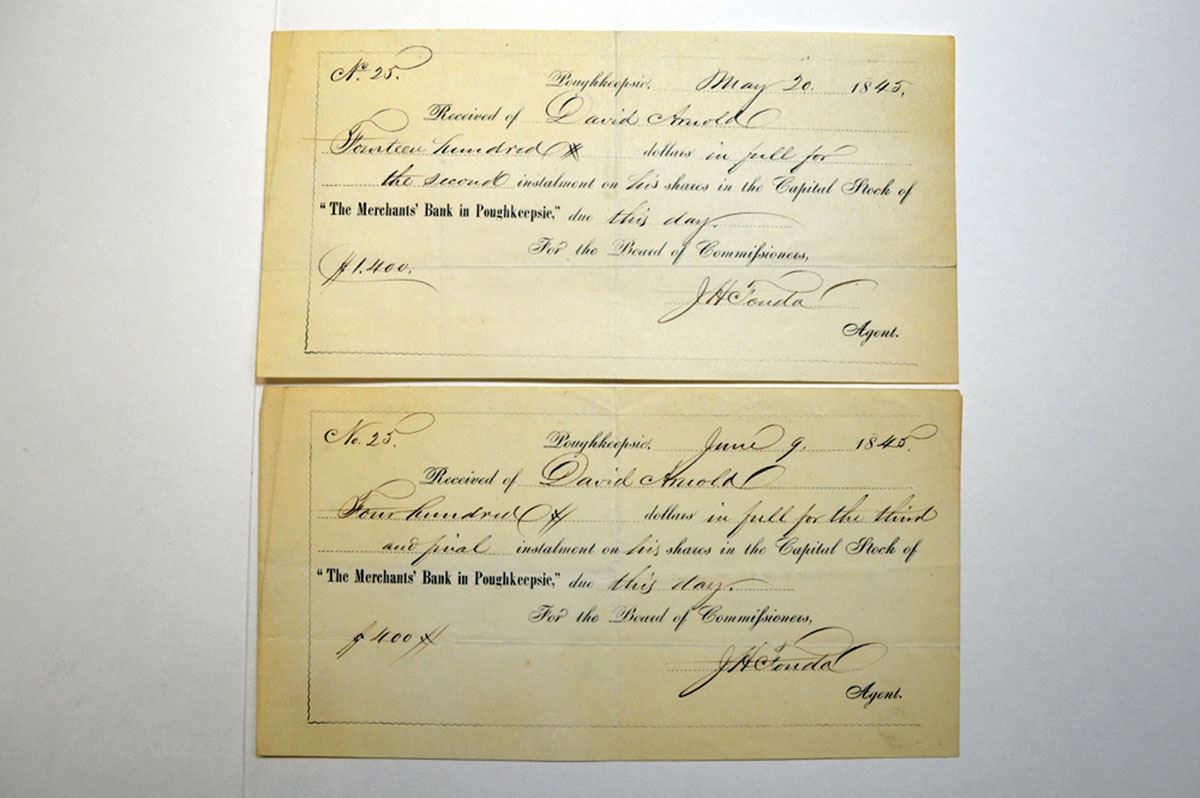 No. 25.
Poughkeepsie, May 20. 1845.
Received of David Arnold
Fourteen hundred dollars in full for
the second instalment on his shares in the Capital Stock of
"The Merchants' Bank in Poughkeepsie," due this day.
For the Board of Commissioners,
$1.400.
J H Fonda
Agent.
No. 25.
Poughkeepsie, June 9. 1845.
Received of David Arnold
Four hundred dollars in full for the third
and final instalment on his shares in the Capital Stock of
"The Merchants' Bank in Poughkeepsie," due this day.
For the Board of Commissioners,
$400
J H Fonda
Agent.